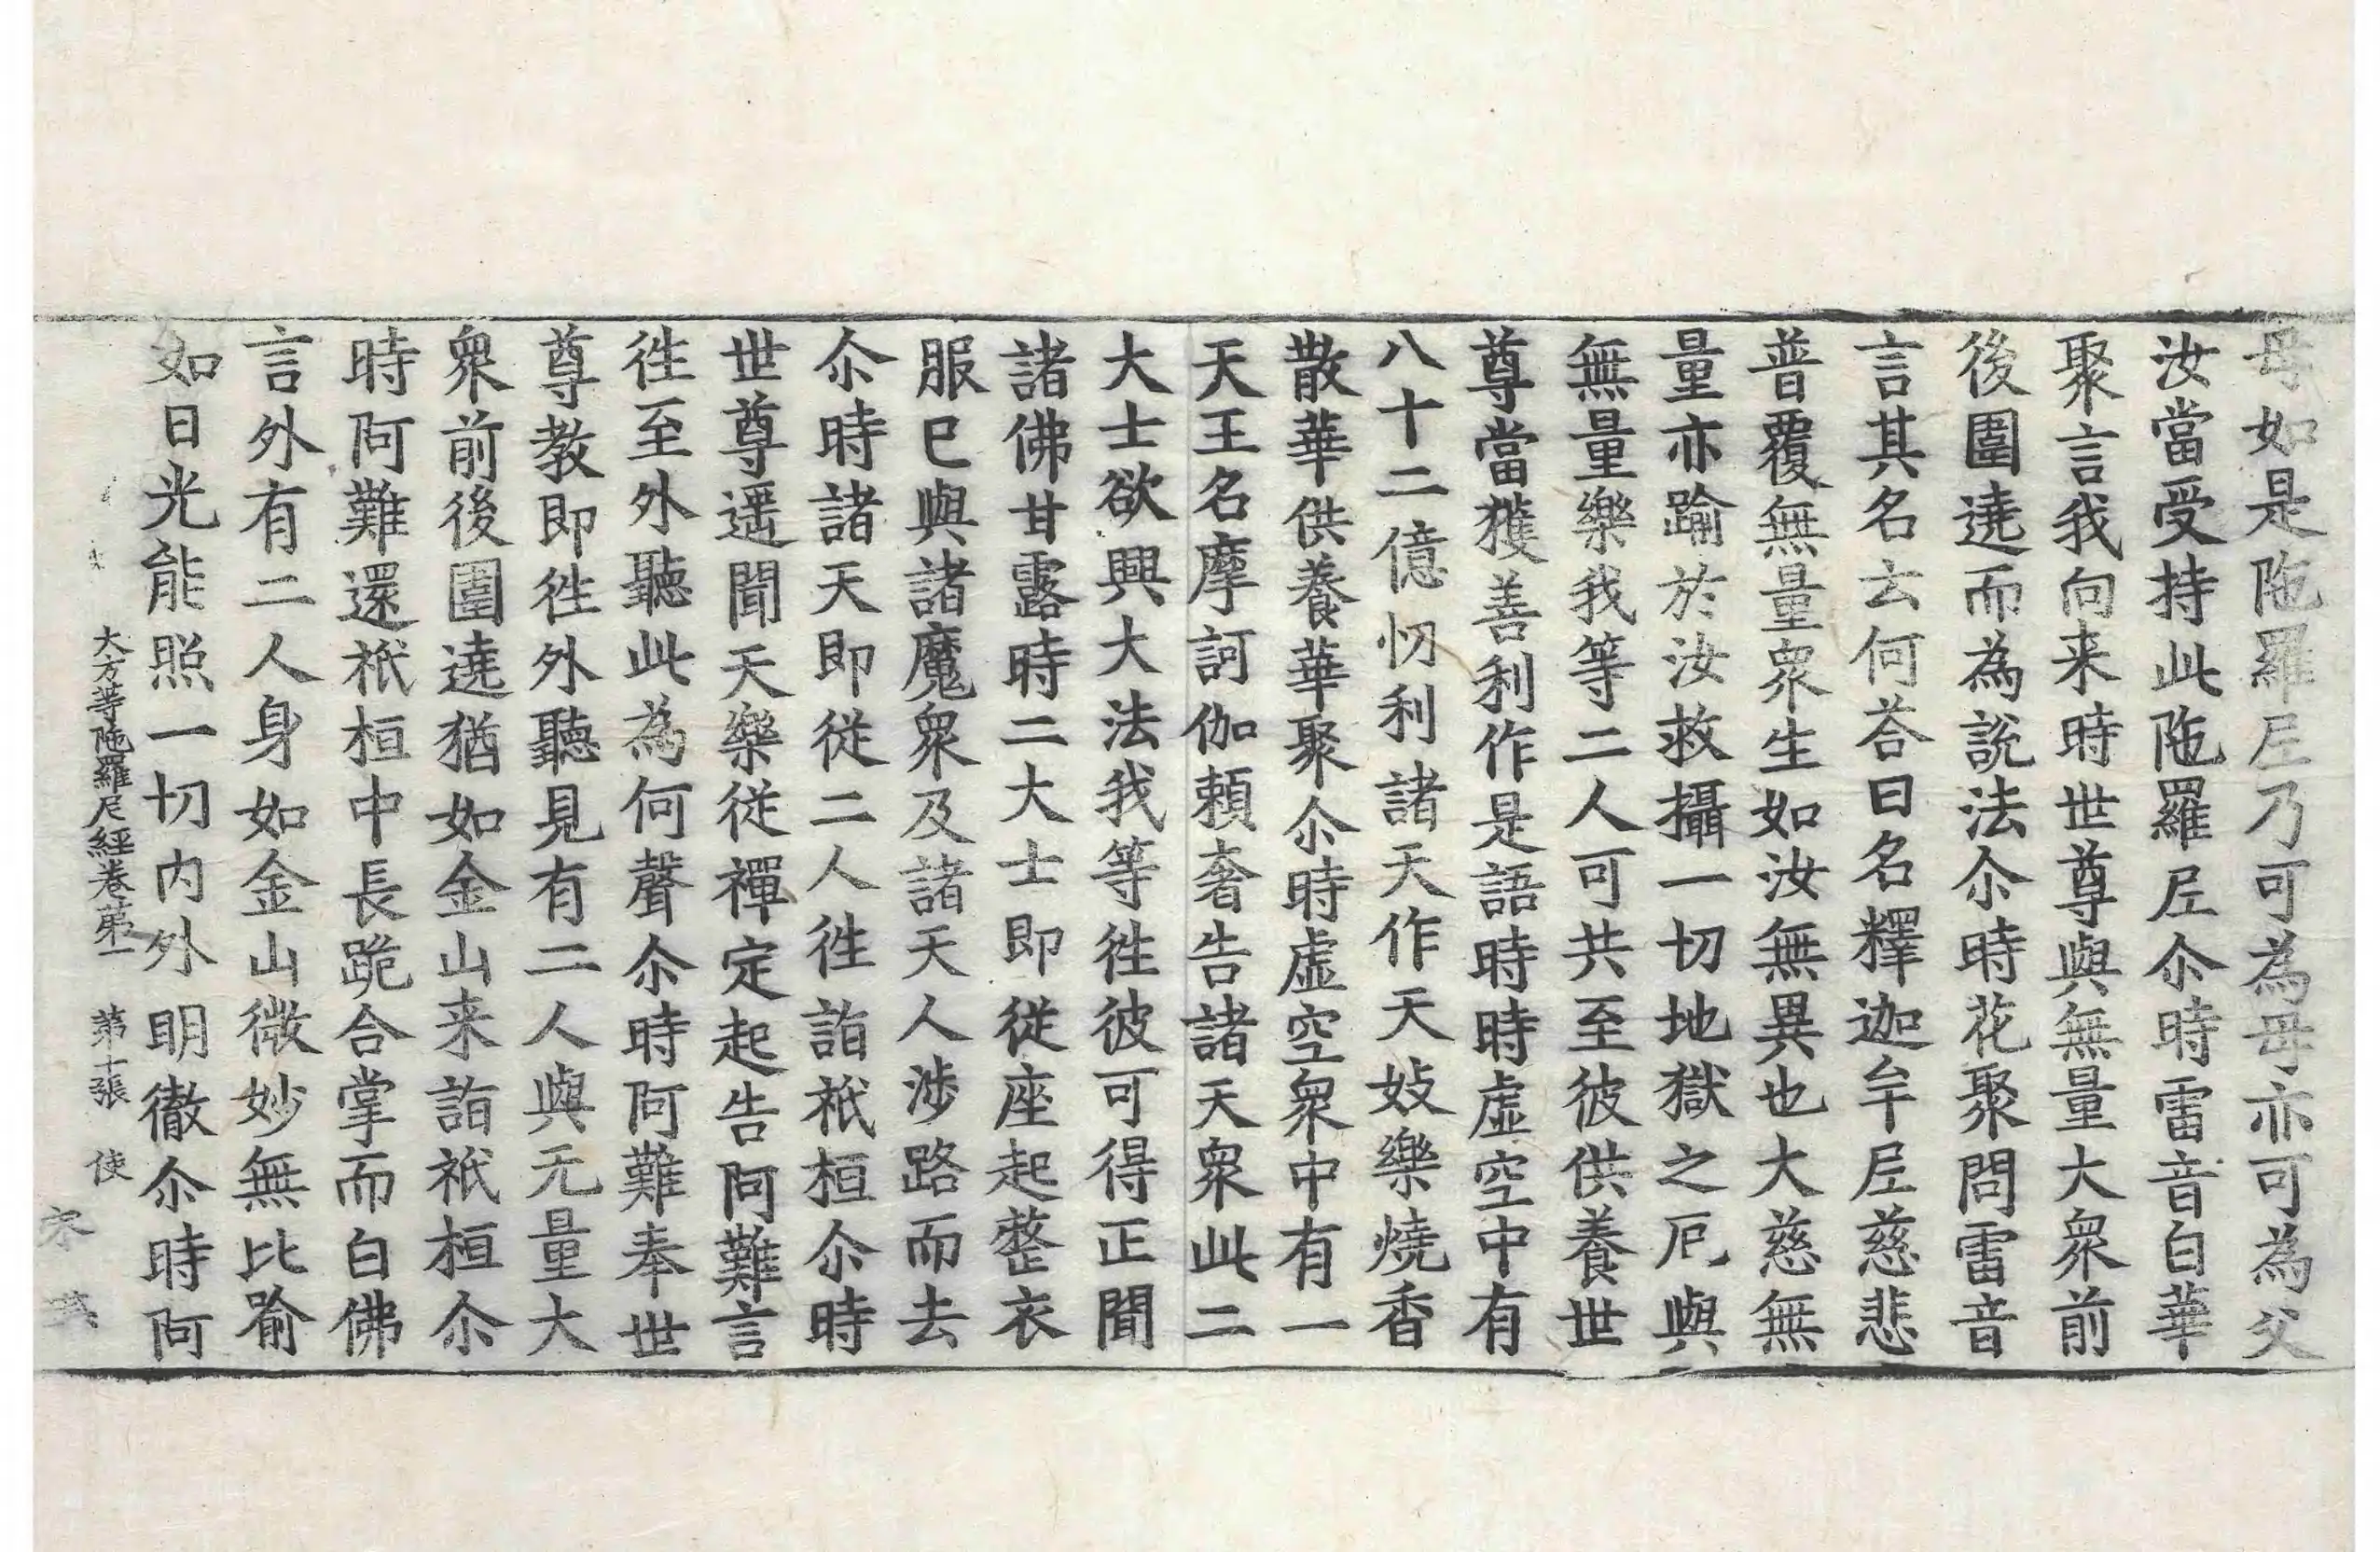 母如是陁羅𡰱乃可為母亦可為父
汝當受持此陁羅𡰱尒時雷音白華
聚言我向来時世尊與無量大衆前
後圍遶而為說法尒時花聚問雷音
言其名云何荅曰名釋迦牟𡰱慈悲
普覆無量衆生如汝無異也大慈無
量亦踰於汝救攝一切地獄之厄與
無量樂我等二人可共至彼供養世
尊當獲善利作是語時時虛空中有
八十二億忉利諸天作天妓樂燒香
散華供養華聚尒時虛空衆中有一
天王名摩訶伽頼奢告諸天衆此二
大士欲興大法我等往彼可得正聞
諸佛甘露時二大士即從座起整衣
服已與諸魔衆及諸天人涉路而去
尒時諸天即從二人往詣祇桓尒時
世尊遥聞天樂從禪定起告阿難言
往至外聽此為何聲尒時阿難奉世
尊教即往外聽見有二人與无量大
衆前後圍遶猶如金山来詣祇桓尒
時阿難還祇桓中長跪合掌而白佛
言外有二人身如金山微妙無比喻
如日光能照一切内外明徹尒時阿
大方等陁羅尼經卷苐一 第十張 使